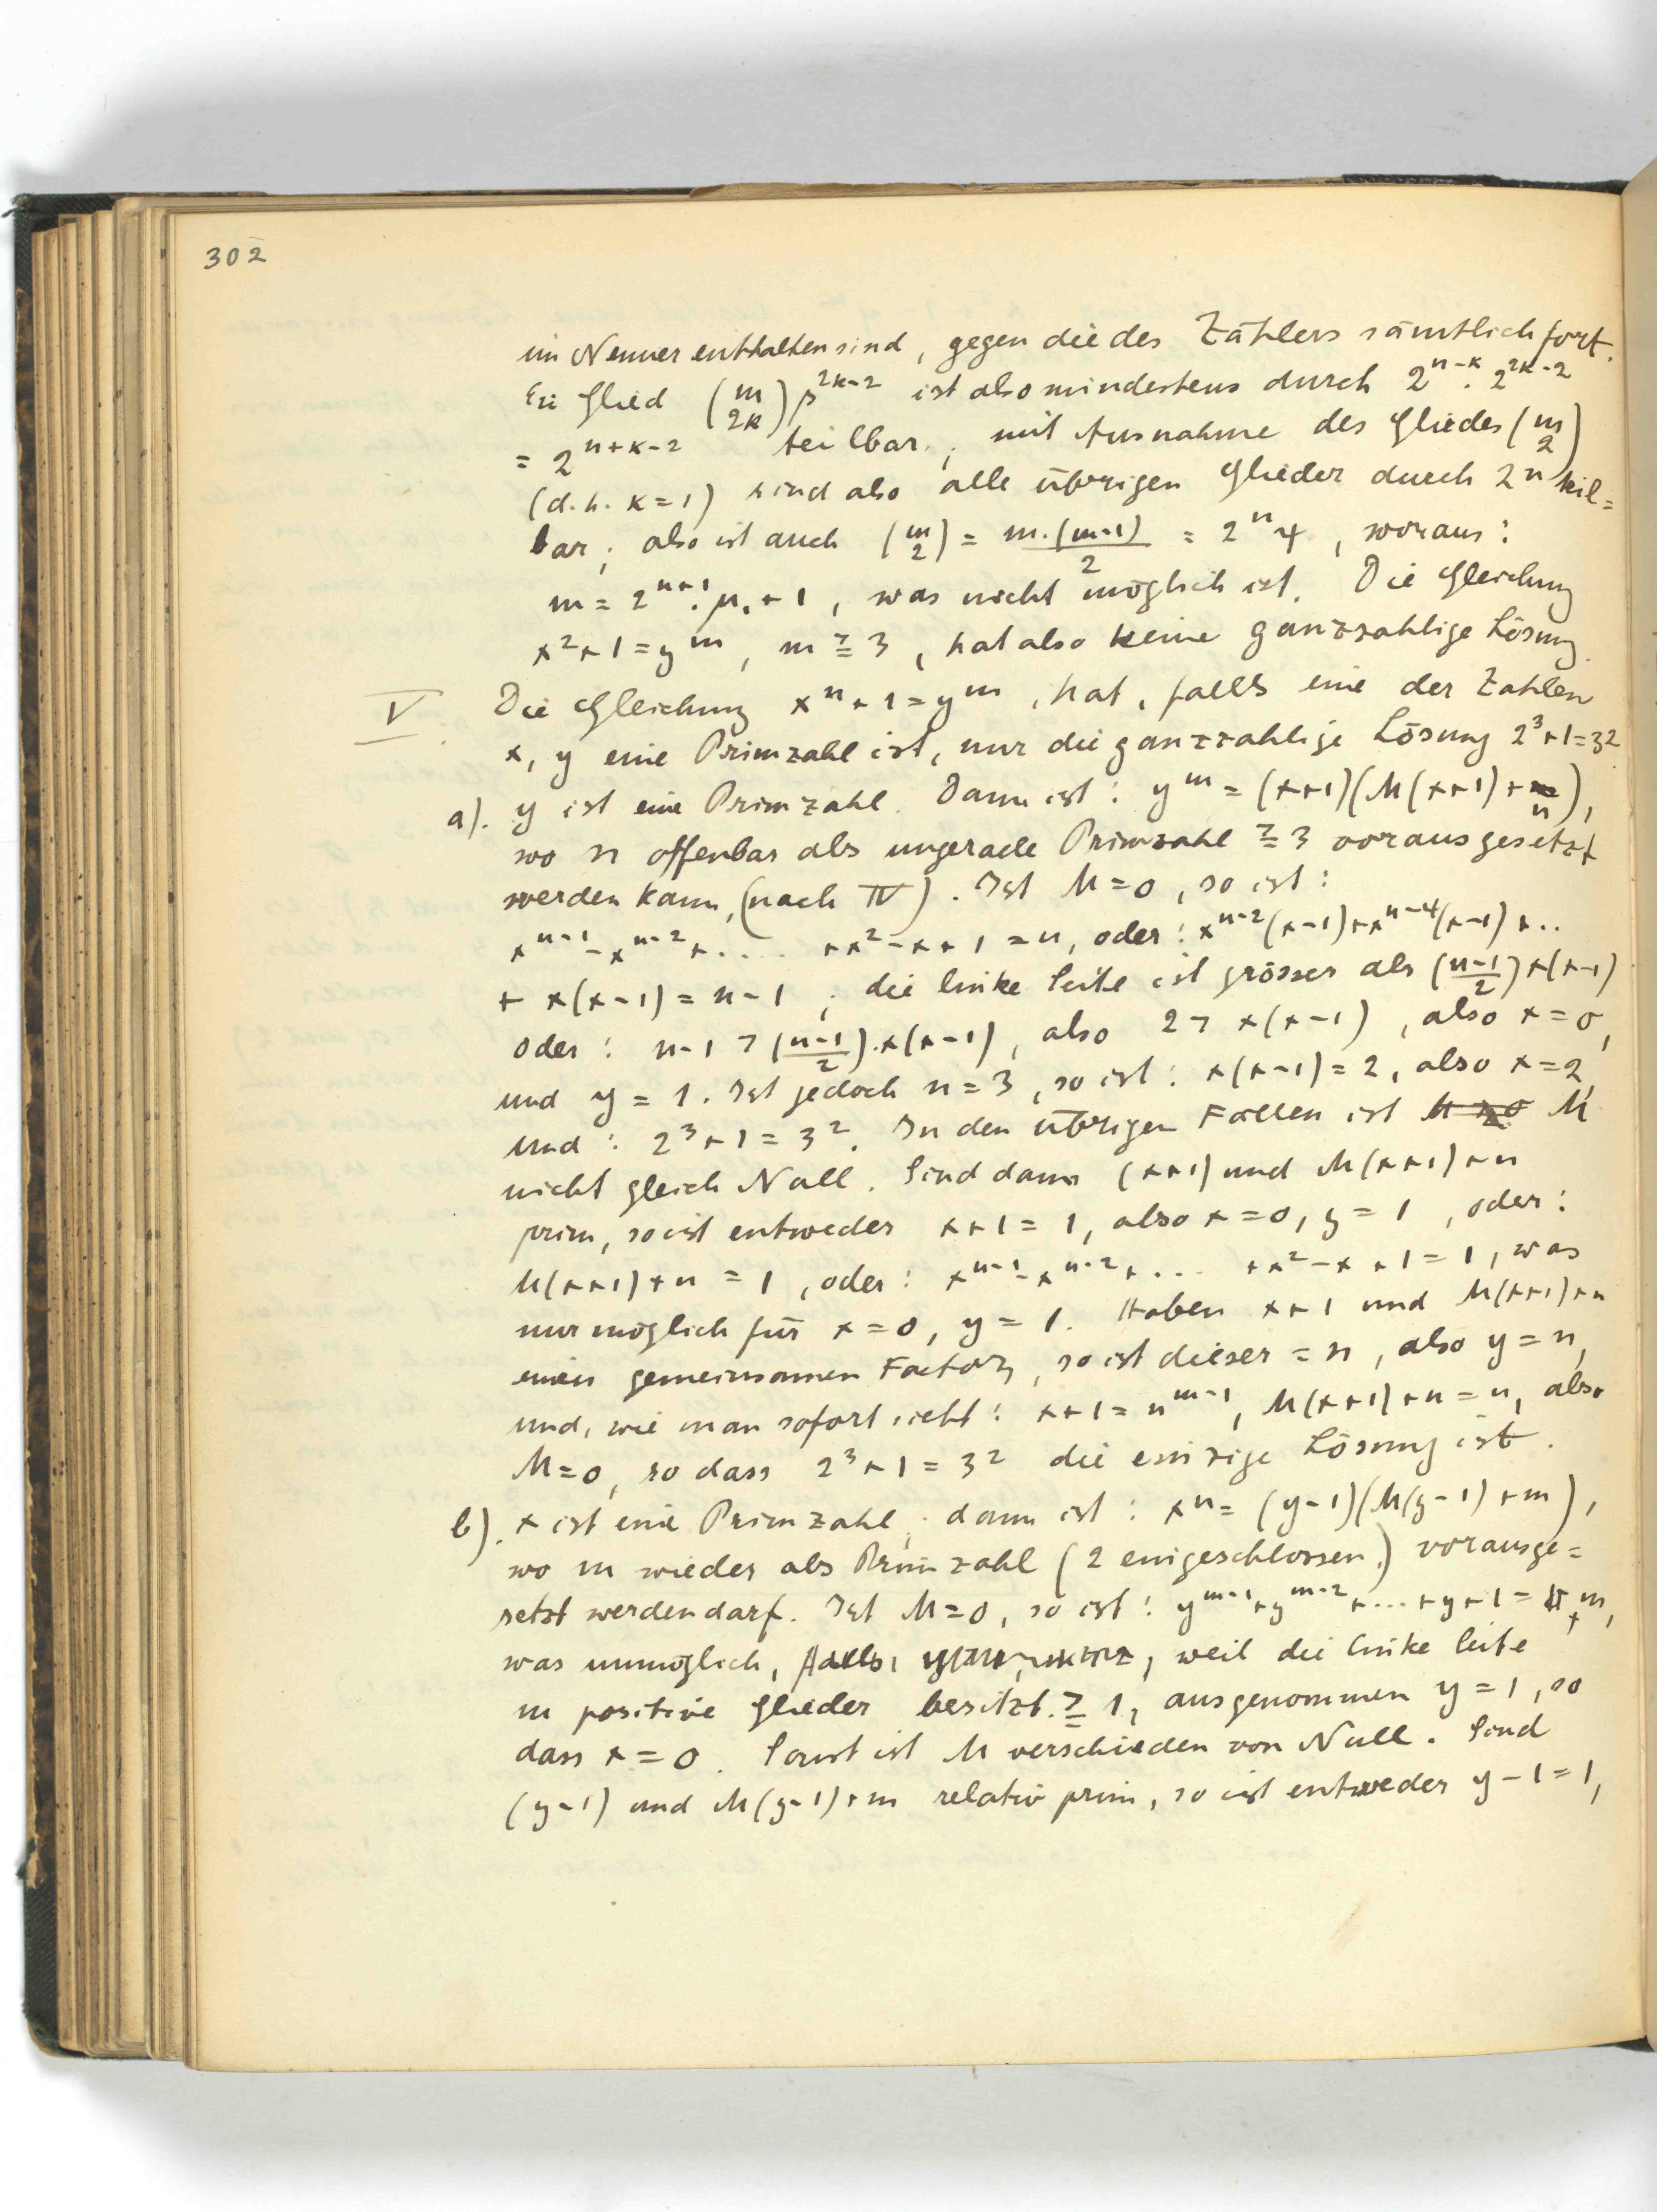 302
im Nenner enthalten sind, gegen die des Zählers sämtlich fort.
Ein Glied (m 2k) β^{2k-2} ist also mindestens durch 2^{n-k}. 2^{2k-2}
= 2^{n+k-2} teilbar; mit Ausnahme des Gliedes (m 2)
(d.h. k=1) sind also alle übrigen Glieder durch 2^n teil=
bar; also ist auch (m 2) = m.(m-1)/2 = 2^n , woraus:
m = 2^{n+1}. μ₁+1, was nicht möglich ist. Die Gleichung
x²+1=y^m, m ≧ 3, hat also keine ganzzahlige Lösung.
V. Die Gleichung x^n+1=y^m, hat, falls eine der Zahlen
x, y eine Primzahl ist, nur die ganzzahlige Lösung 2³+1=3²
a). y ist eine Primzahl. Dann ist: y^m = (x+1)(M(x+1)+n),
wo n offenbar als ungerade Primzahl ≧ 3 vorausgesetzt
werden kann, (nach IV). Ist M=0, so ist:
x^{n-1}-x^{n-2}+.... +x²-x+1=n, oder: x^{n-2}(x-1)+x^{n-4}(x-1)+..
+ x(x-1)=n-1; die linke Seite ist grösser als (n-1/2)x(x-1)
oder: n-1 > (n-1/2).x(x-1), also 2 > x(x-1), also x=0,
und y = 1. Ist jedoch n=3, so ist: x(x-1)=2, also x=2,
und: 2³+1=3². In den übrigen Fällen ist M
nicht gleich Null. Sind dann (x+1) und M(x+1)+n
prim, so ist entweder x+1=1, also x=0, y=1, oder:
M(x+1)+n = 1, oder: x^{n-1}-x^{n-2}+... +x²-x+1=1, was
nur möglich für x=0, y=1. Haben x+1 und M(x+1)+n
einen gemeinsamen Factor, so ist dieser = n, also y=n,
und, wie man sofort sieht: x+1=n^{m-1}, M(x+1)+n=n, also
M=0, so dass 2³+1=3² die einzige Lösung ist.
b). x ist eine Primzahl; dann ist: x^n=(y-1)(M(y-1)+m),
wo m wieder als Primzahl (2 eingeschlossen) vorausge=
setzt werden darf. Ist M=0, so ist: y^{m-1}+y^{m-2}+...+y+1=m,
was unmöglich, weil die linke Seite
m positive Glieder besitzt ≧ 1, ausgenommen y=1, so
dass x=0. Sonst ist M verschieden von Null. Sind
(y-1) und M(y-1)+m relativ prim, so ist entweder y-1=1,